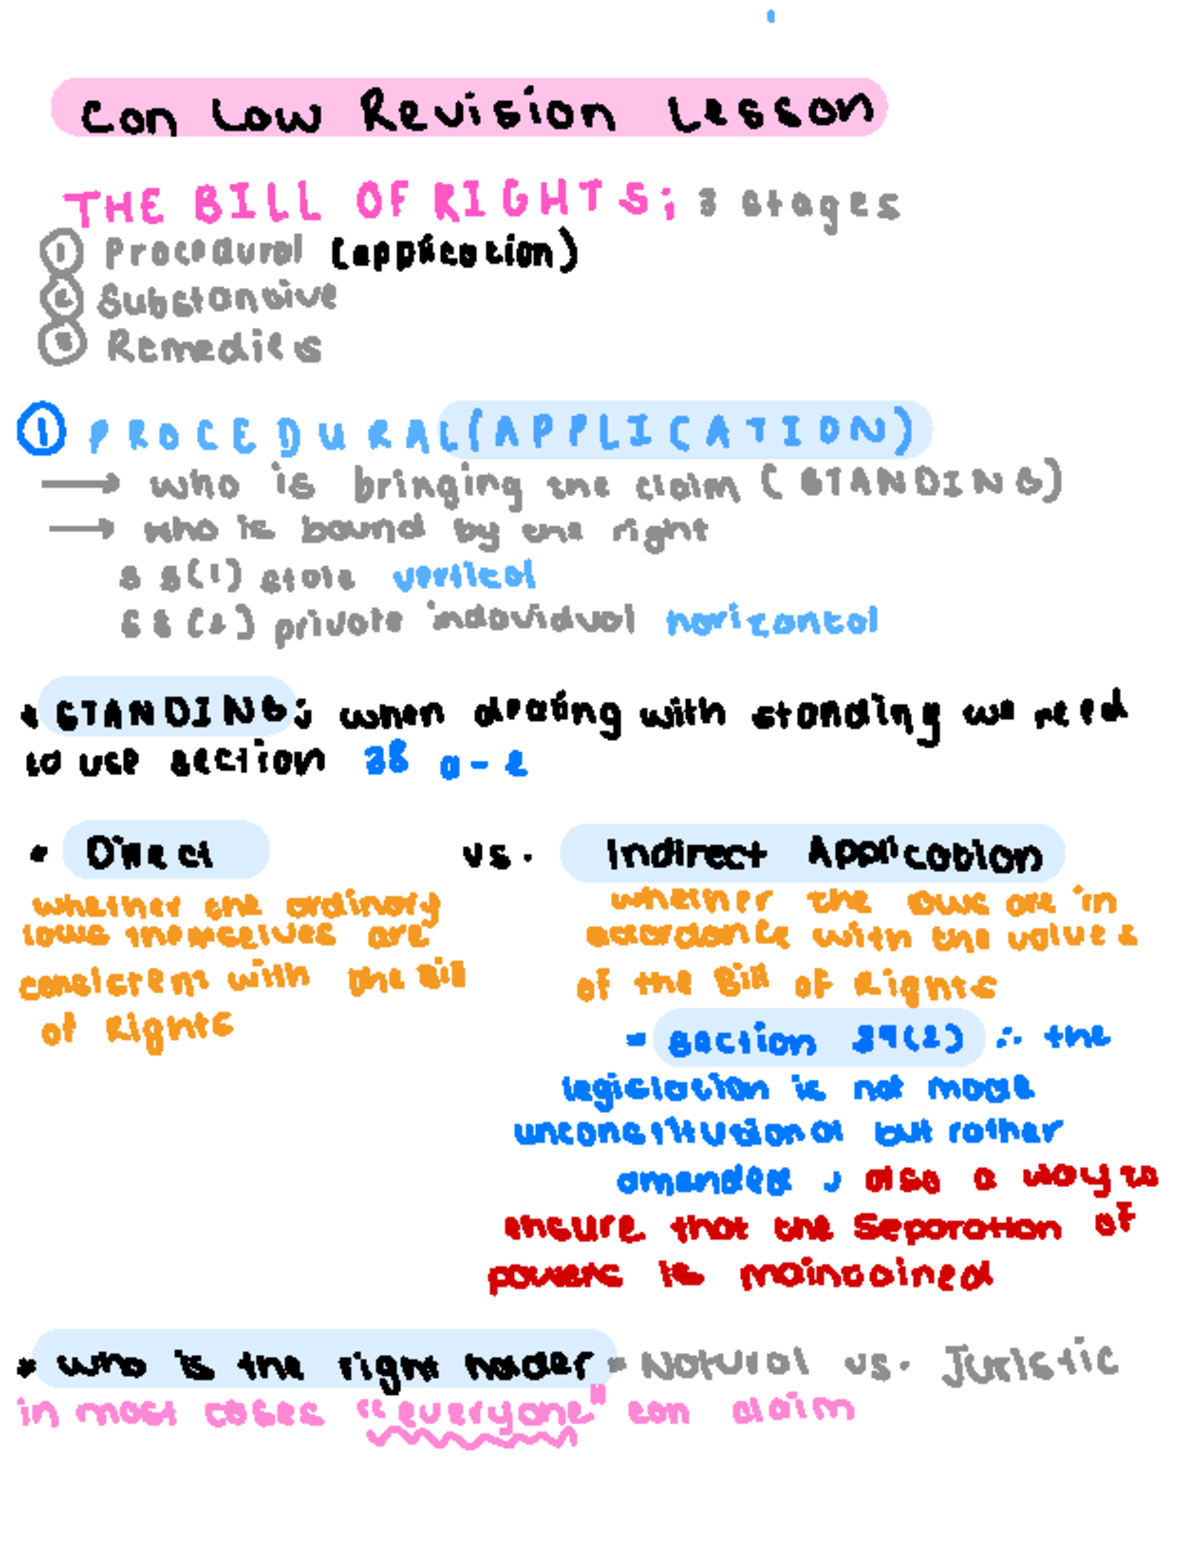 Con Law Revision Lesson
THE BILL OF RIGHTS; 3 stages
① Procedural (application)
② Substansive
③ Remedies
① PROCEDURAL (APPLICATION)
→ who is bringing the claim (STANDING)
→ who is bound by the right
s 8(1) state vertical
s 8(2) private indavidual horizontal
• STANDING; when dealing with standing we need
to use section 38 a-e
• Direct vs. Indirect Application
whether the ordinary
laws themselves are
consistent with the Bill
of Rights
whether the laws are in
accordance with the values
of the Bill of Rights
= section 39(2) ∴ the
legislation is not made
unconstitutional but rather
amended, also a way to
ensure that the separation of
powers is maintained
• who is the right holder = Natural vs. Juristic
in most cases "everyone" can claim